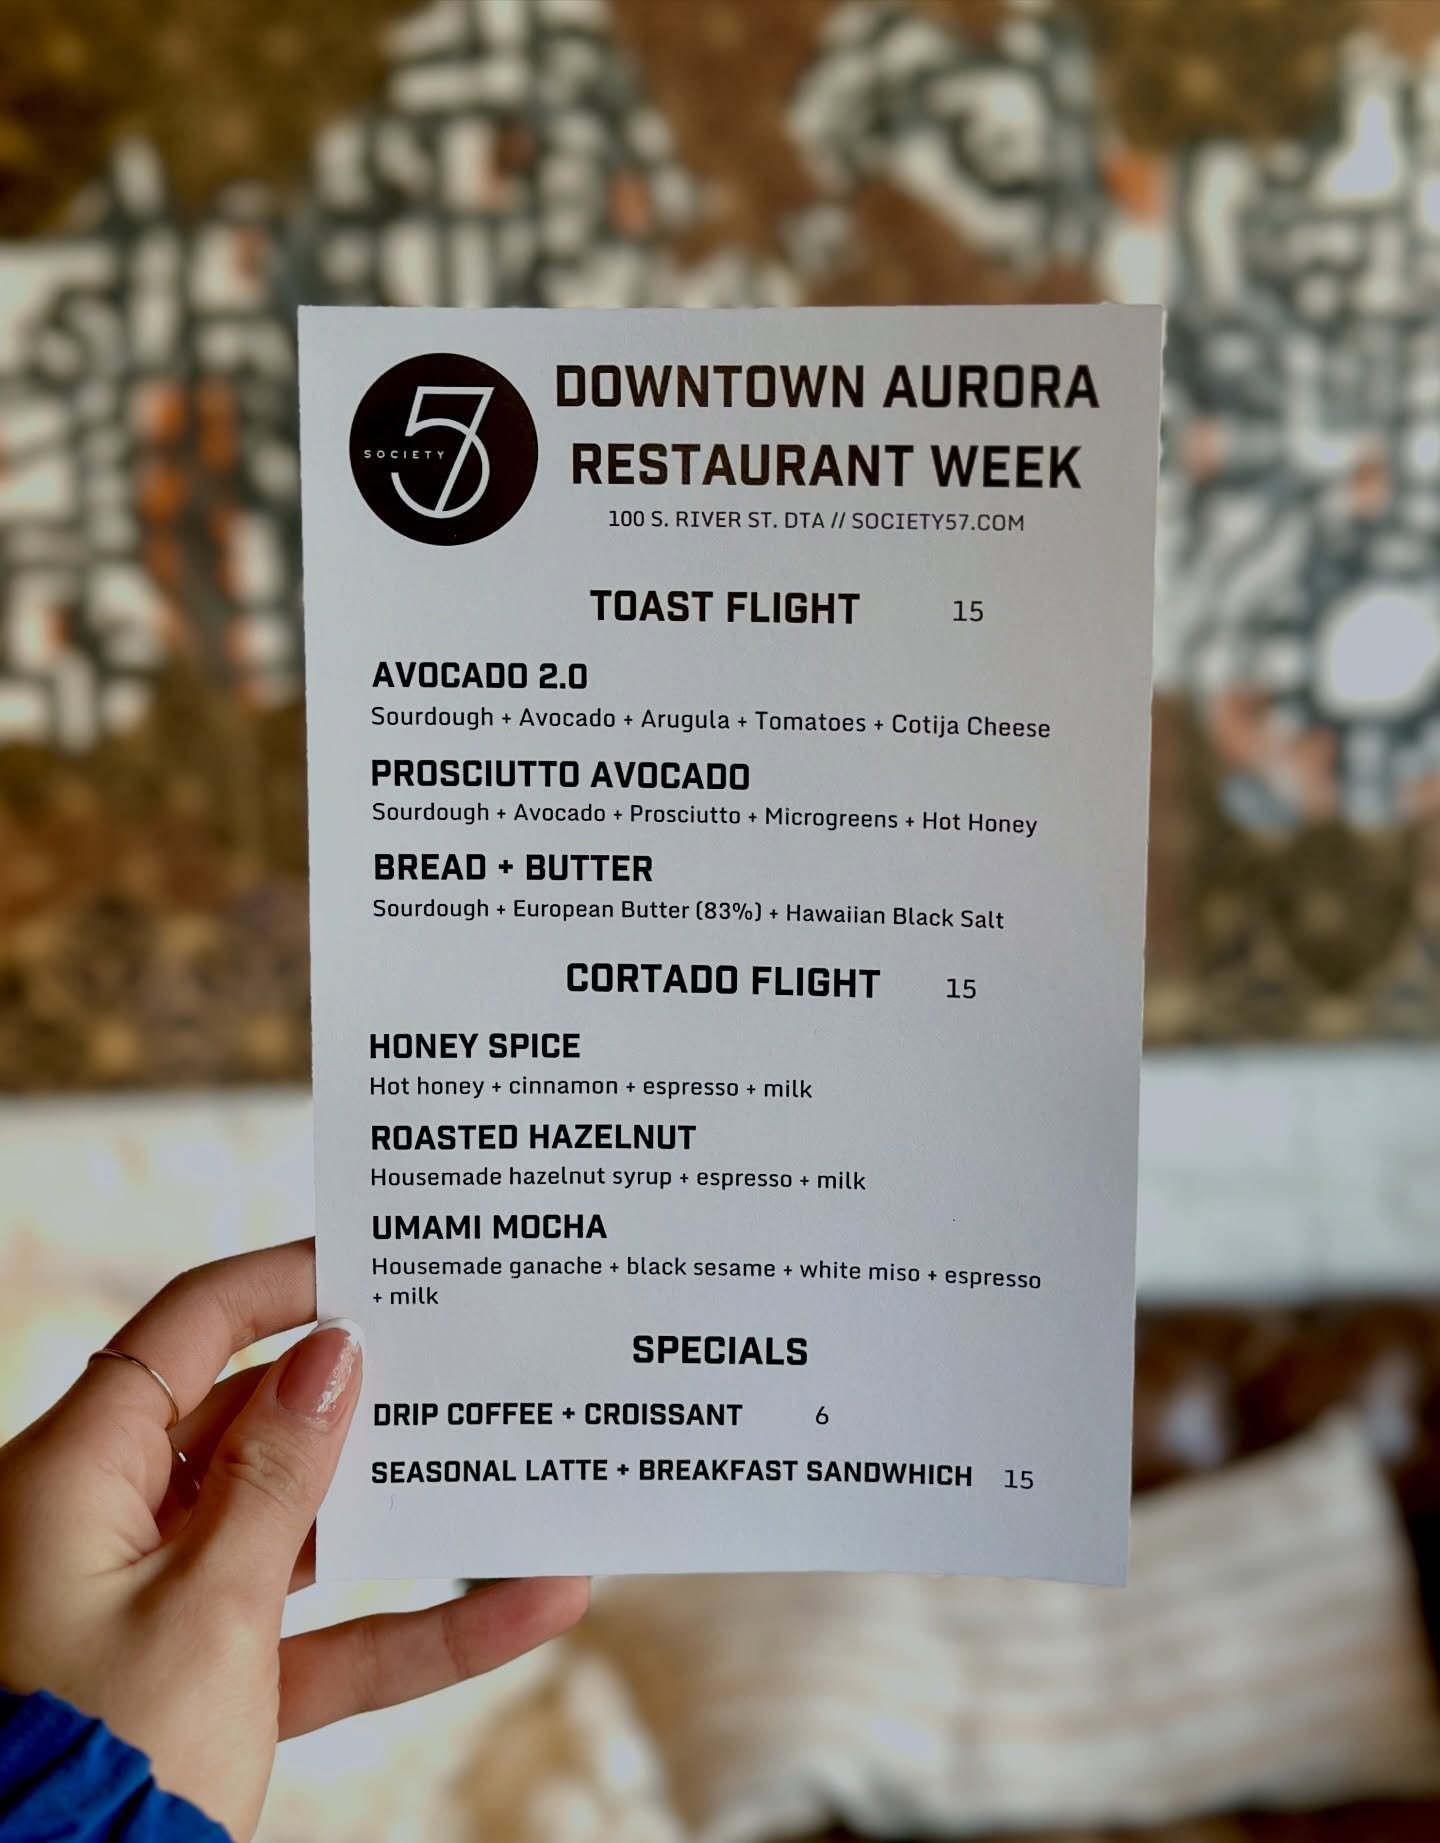 SOCIETY 57
DOWNTOWN AURORA
RESTAURANT WEEK
100 S. RIVER ST. DTA // SOCIETY57.COM
TOAST FLIGHT 15
AVOCADO 2.0
Sourdough + Avocado + Arugula + Tomatoes + Cotija Cheese
PROSCIUTTO AVOCADO
Sourdough + Avocado + Prosciutto + Microgreens + Hot Honey
BREAD + BUTTER
Sourdough + European Butter (83%) + Hawaiian Black Salt
CORTADO FLIGHT 15
HONEY SPICE
Hot honey + cinnamon + espresso + milk
ROASTED HAZELNUT
Housemade hazelnut syrup + espresso + milk
UMAMI MOCHA
Housemade ganache + black sesame + white miso + espresso
+ milk
SPECIALS
DRIP COFFEE + CROISSANT 6
SEASONAL LATTE + BREAKFAST SANDWHICH 15